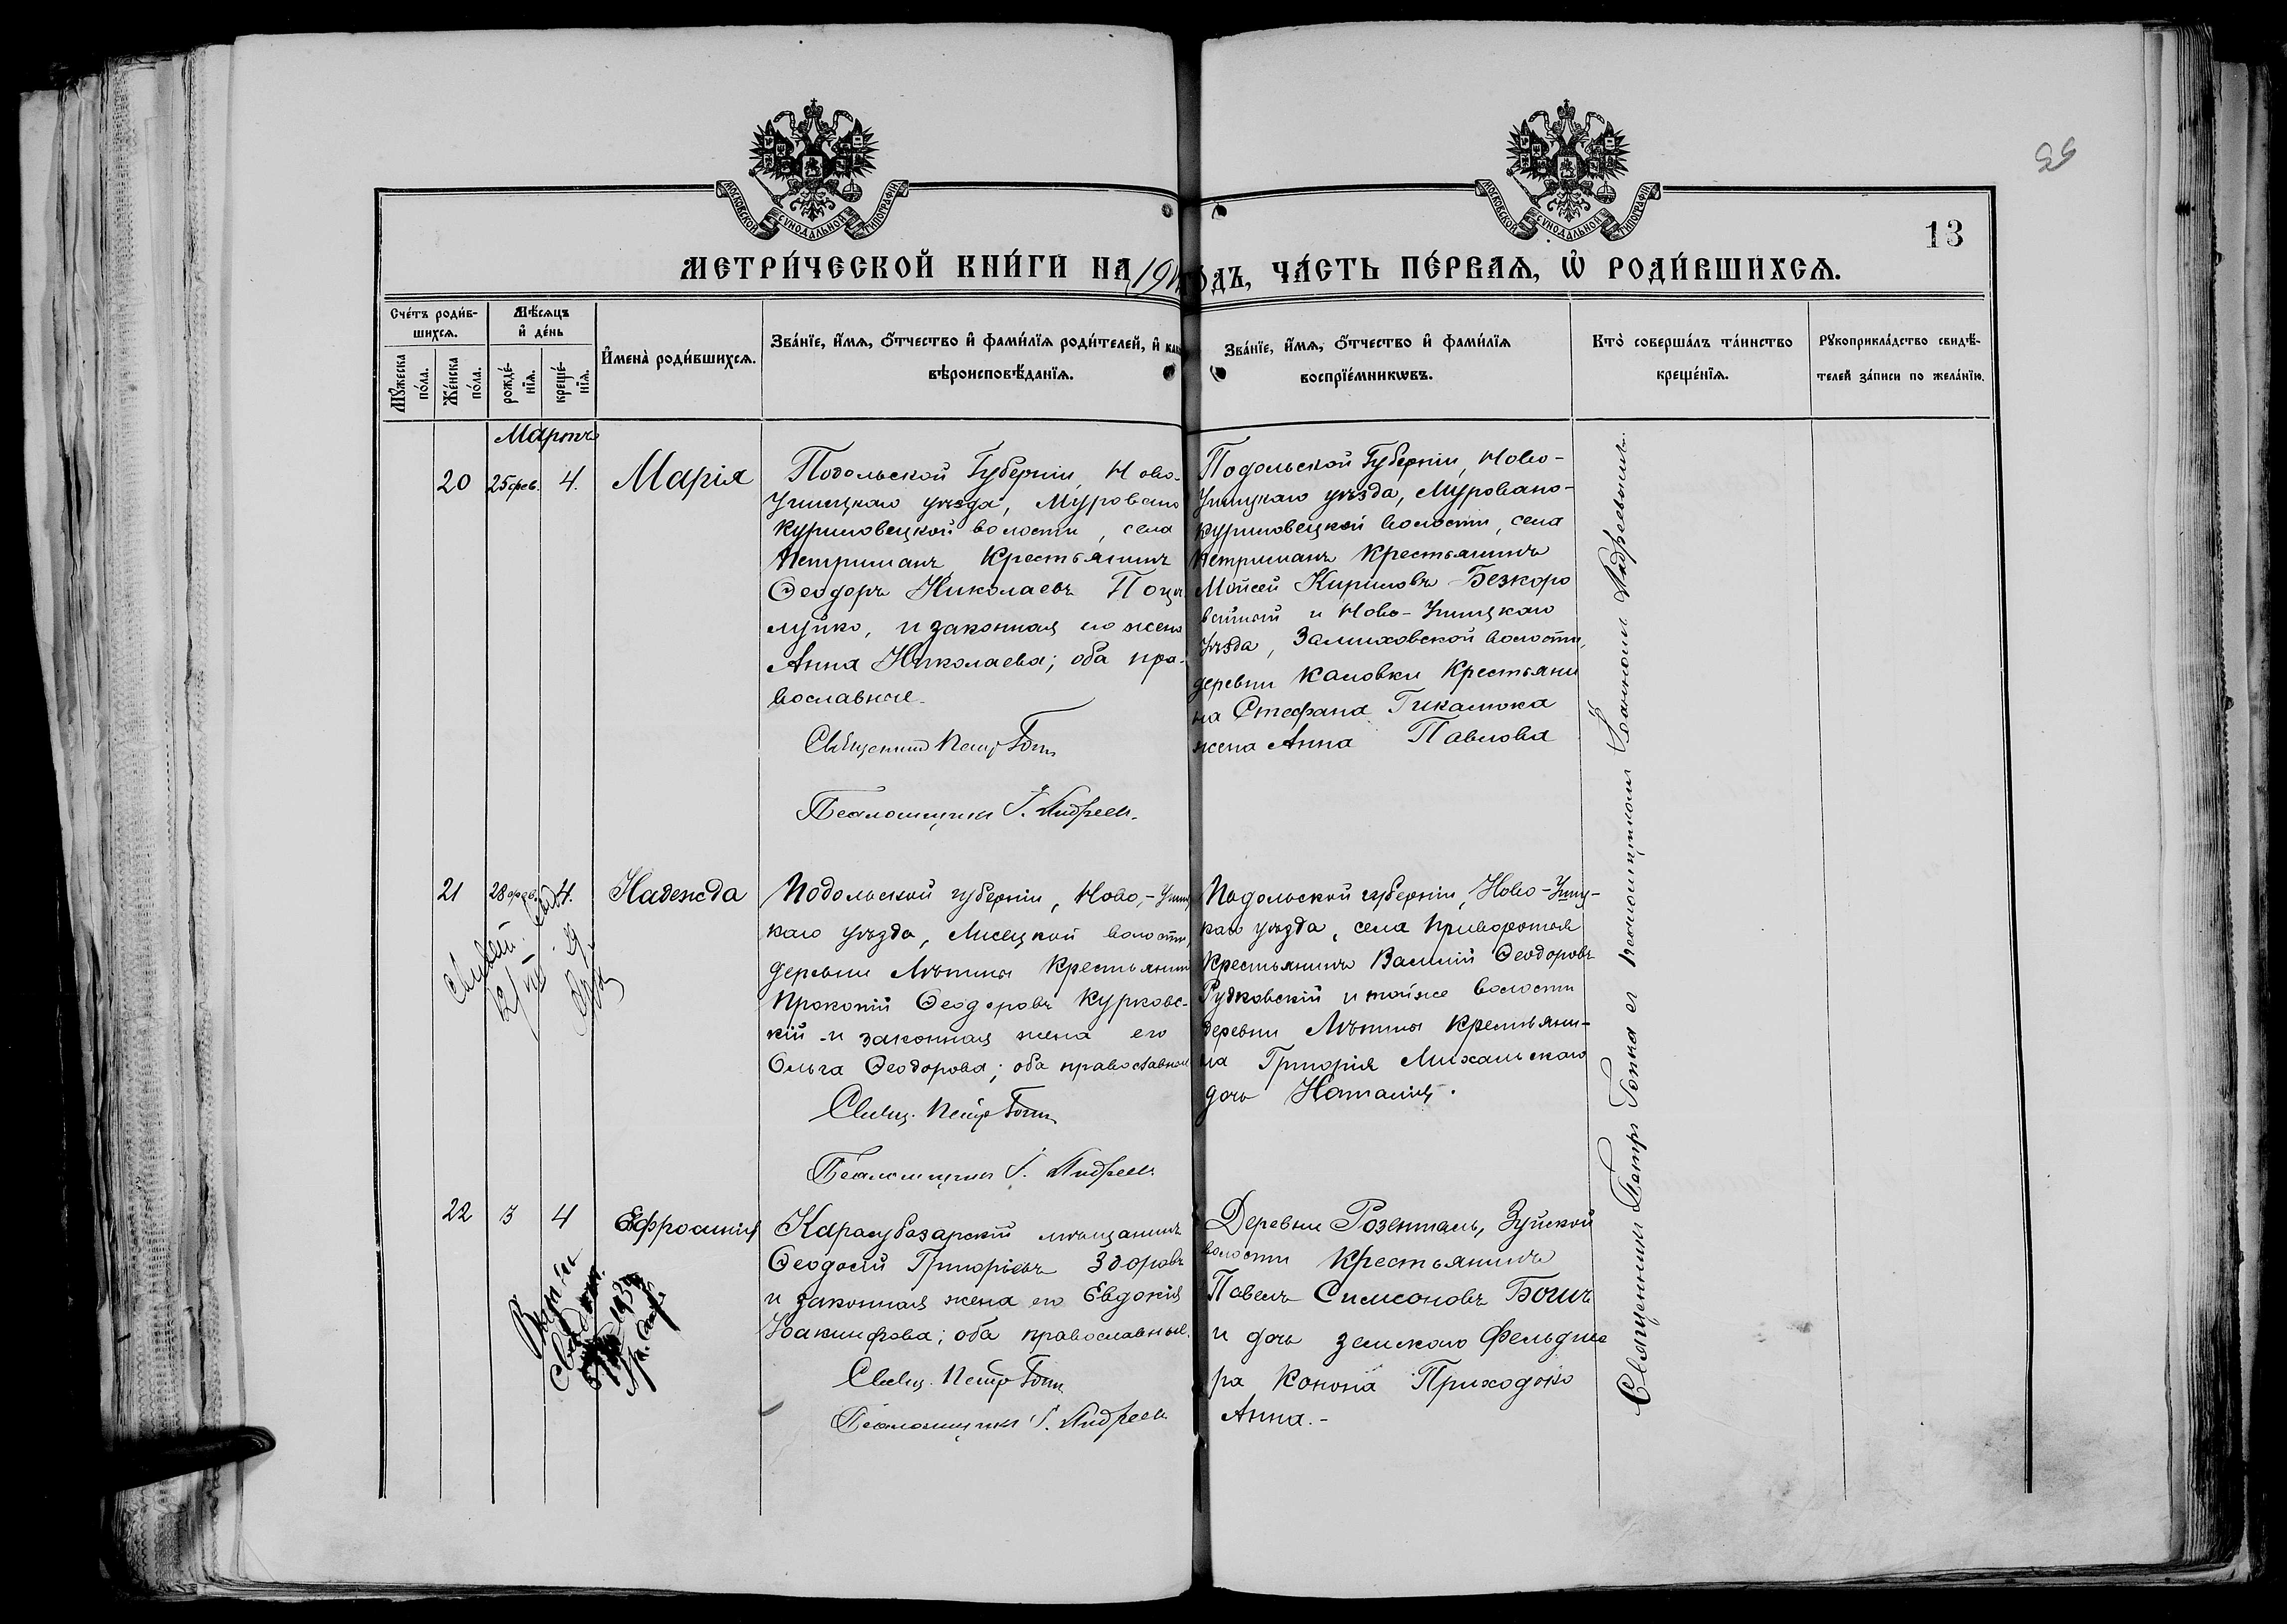 МОСКОВСКОЙ СѴНОДАЛЬНОЙ ТИПОГРАФІИ
МОСКОВСКОЙ СѴНОДАЛЬНОЙ ТИПОГРАФІИ
13
МЕТРИ́ЧЕСКОЙ КНИ́ГИ НА 191
ГО́ДЪ, ЧА́СТЬ ПЕ́РВАЯ, Ѡ҆ РОДИ́ВШИХСЯ.
Сче́тъ роди́в-
шихся.
Мѣ́сяцъ
и҆ де́нь
Мꙋ́жеска
по́ла.
Же́нска
по́ла.
рожде́-
нїя.
креще́-
нїя.
И҆мена̀ роди́вшихся.
Зва́нїе, и҆́мя, ѻ҆́тчество и҆ фами́лїя роди́телей, и҆ как
вѣроисповѣ́данїя.
Зва́нїе, и҆́мя, ѻ҆́тчество и҆ фами́лїя
воспрїе́мникѡвъ.
Кто̀ соверша́лъ та́инство
креще́нїя.
Рꙋкоприкла́дство свидѣ́-
телей за́писи по жела́нїю.
Мартъ
20 25 фев. 4. Марія
Подольской Губерніи, Ново-
Ушицкаго уѣзда, Муровано
Куриловецкой волости, села
Петриманъ Крестьянинъ
Ѳеодоръ Николаевъ Поця
луйко, и законная его жена
Анна Николаева; оба пра-
вославные.
Священник Петр Гопка
Псаломщикъ І. Андреев.
Подольской Губерніи, Ново-
Ушицкаго уѣзда, Муровано-
Куриловецкой волости, села
Петриманъ Крестьянинъ
Мойсей Кириловъ Безкоро
вайный и Ново-Ушицкаго
уѣзда, Замиховской волости,
деревни Каловки Крестьяни
на Стефана Гикалюка
жена Анна Павлова
21 28 фев. 4. Надежда
Подольской губерніи, Ново-Ушиц
каго уѣзда, Лисецкой волости,
деревни Лѣтина Крестьянинъ
Прокопій Ѳеодоровъ Курковс-
кій и законная жена его
Ольга Ѳеодорова; оба православные
Свящ. Петр Гопка
Псаломщикъ І. Андреев.
Подольской губерніи, Ново-Ушиц-
каго уѣзда, села Приворотья
Крестьянинъ Василій Ѳеодоровъ
Рудковскій и той же волости
деревни Лѣтина Крестьяни-
на Григорія Михальскаго
дочь Наталія.
22 3 4 Евфросинія
Карасубазарскій мѣщанинъ
Ѳеодосій Григоріевъ Здоровъ
и законная жена его Евдокія
Іоакинфова; оба православные.
Свящ. Петр Гопка
Псаломщикъ І. Андреев
Деревни Розенталь, Зуйской
волости Крестьянинъ
Павелъ Симеоновъ Боши
и дочь земскаго Фельдше
ра Конона Приходько
Анна.
Священникъ Петръ Гопка съ псаломщикомъ Іоанномъ Андреевымъ.